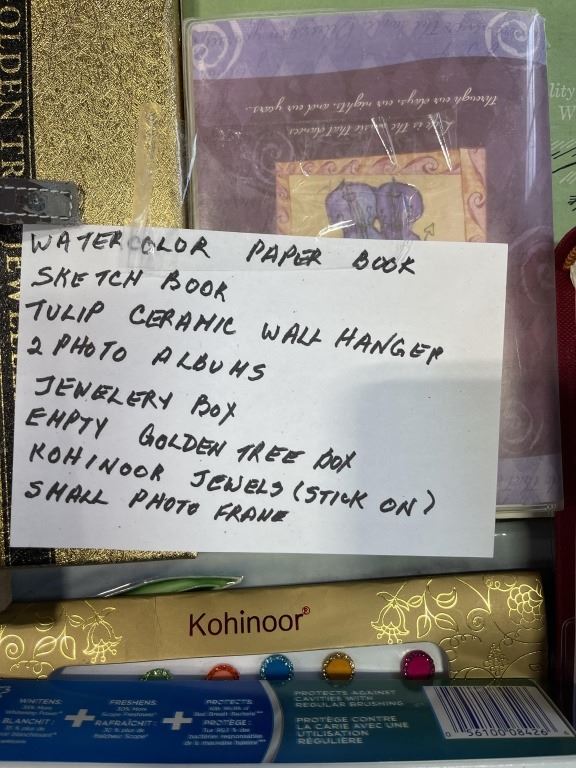 OLDEN TR
WEL
Through our days, our nights, and our years...
Life is the music that dances
lity
W
WATERCOLOR PAPER BOOK
SKETCH BOOK
TULIP CERAMIC WALL HANGER
2 PHOTO ALBUMS
JEWELERY BOX
EMPTY GOLDEN TREE BOX
KOHINOOR JEWELS (STICK ON)
SMALL PHOTO FRAME
Kohinoor®
WHITENS:
FRESHENS
30% More
Scope Freshness*
PROTECTS
PROTECTS AGAINST
CAVITIES WITH
REGULAR BRUSHING
BLANCHIT:
RAFRAÎCHIT:
PROTÈGE:
PROTÈGE CONTRE
LA CARIE AVEC UNE
UTILISATION
RÉGULIÈRE
0 56100 08426